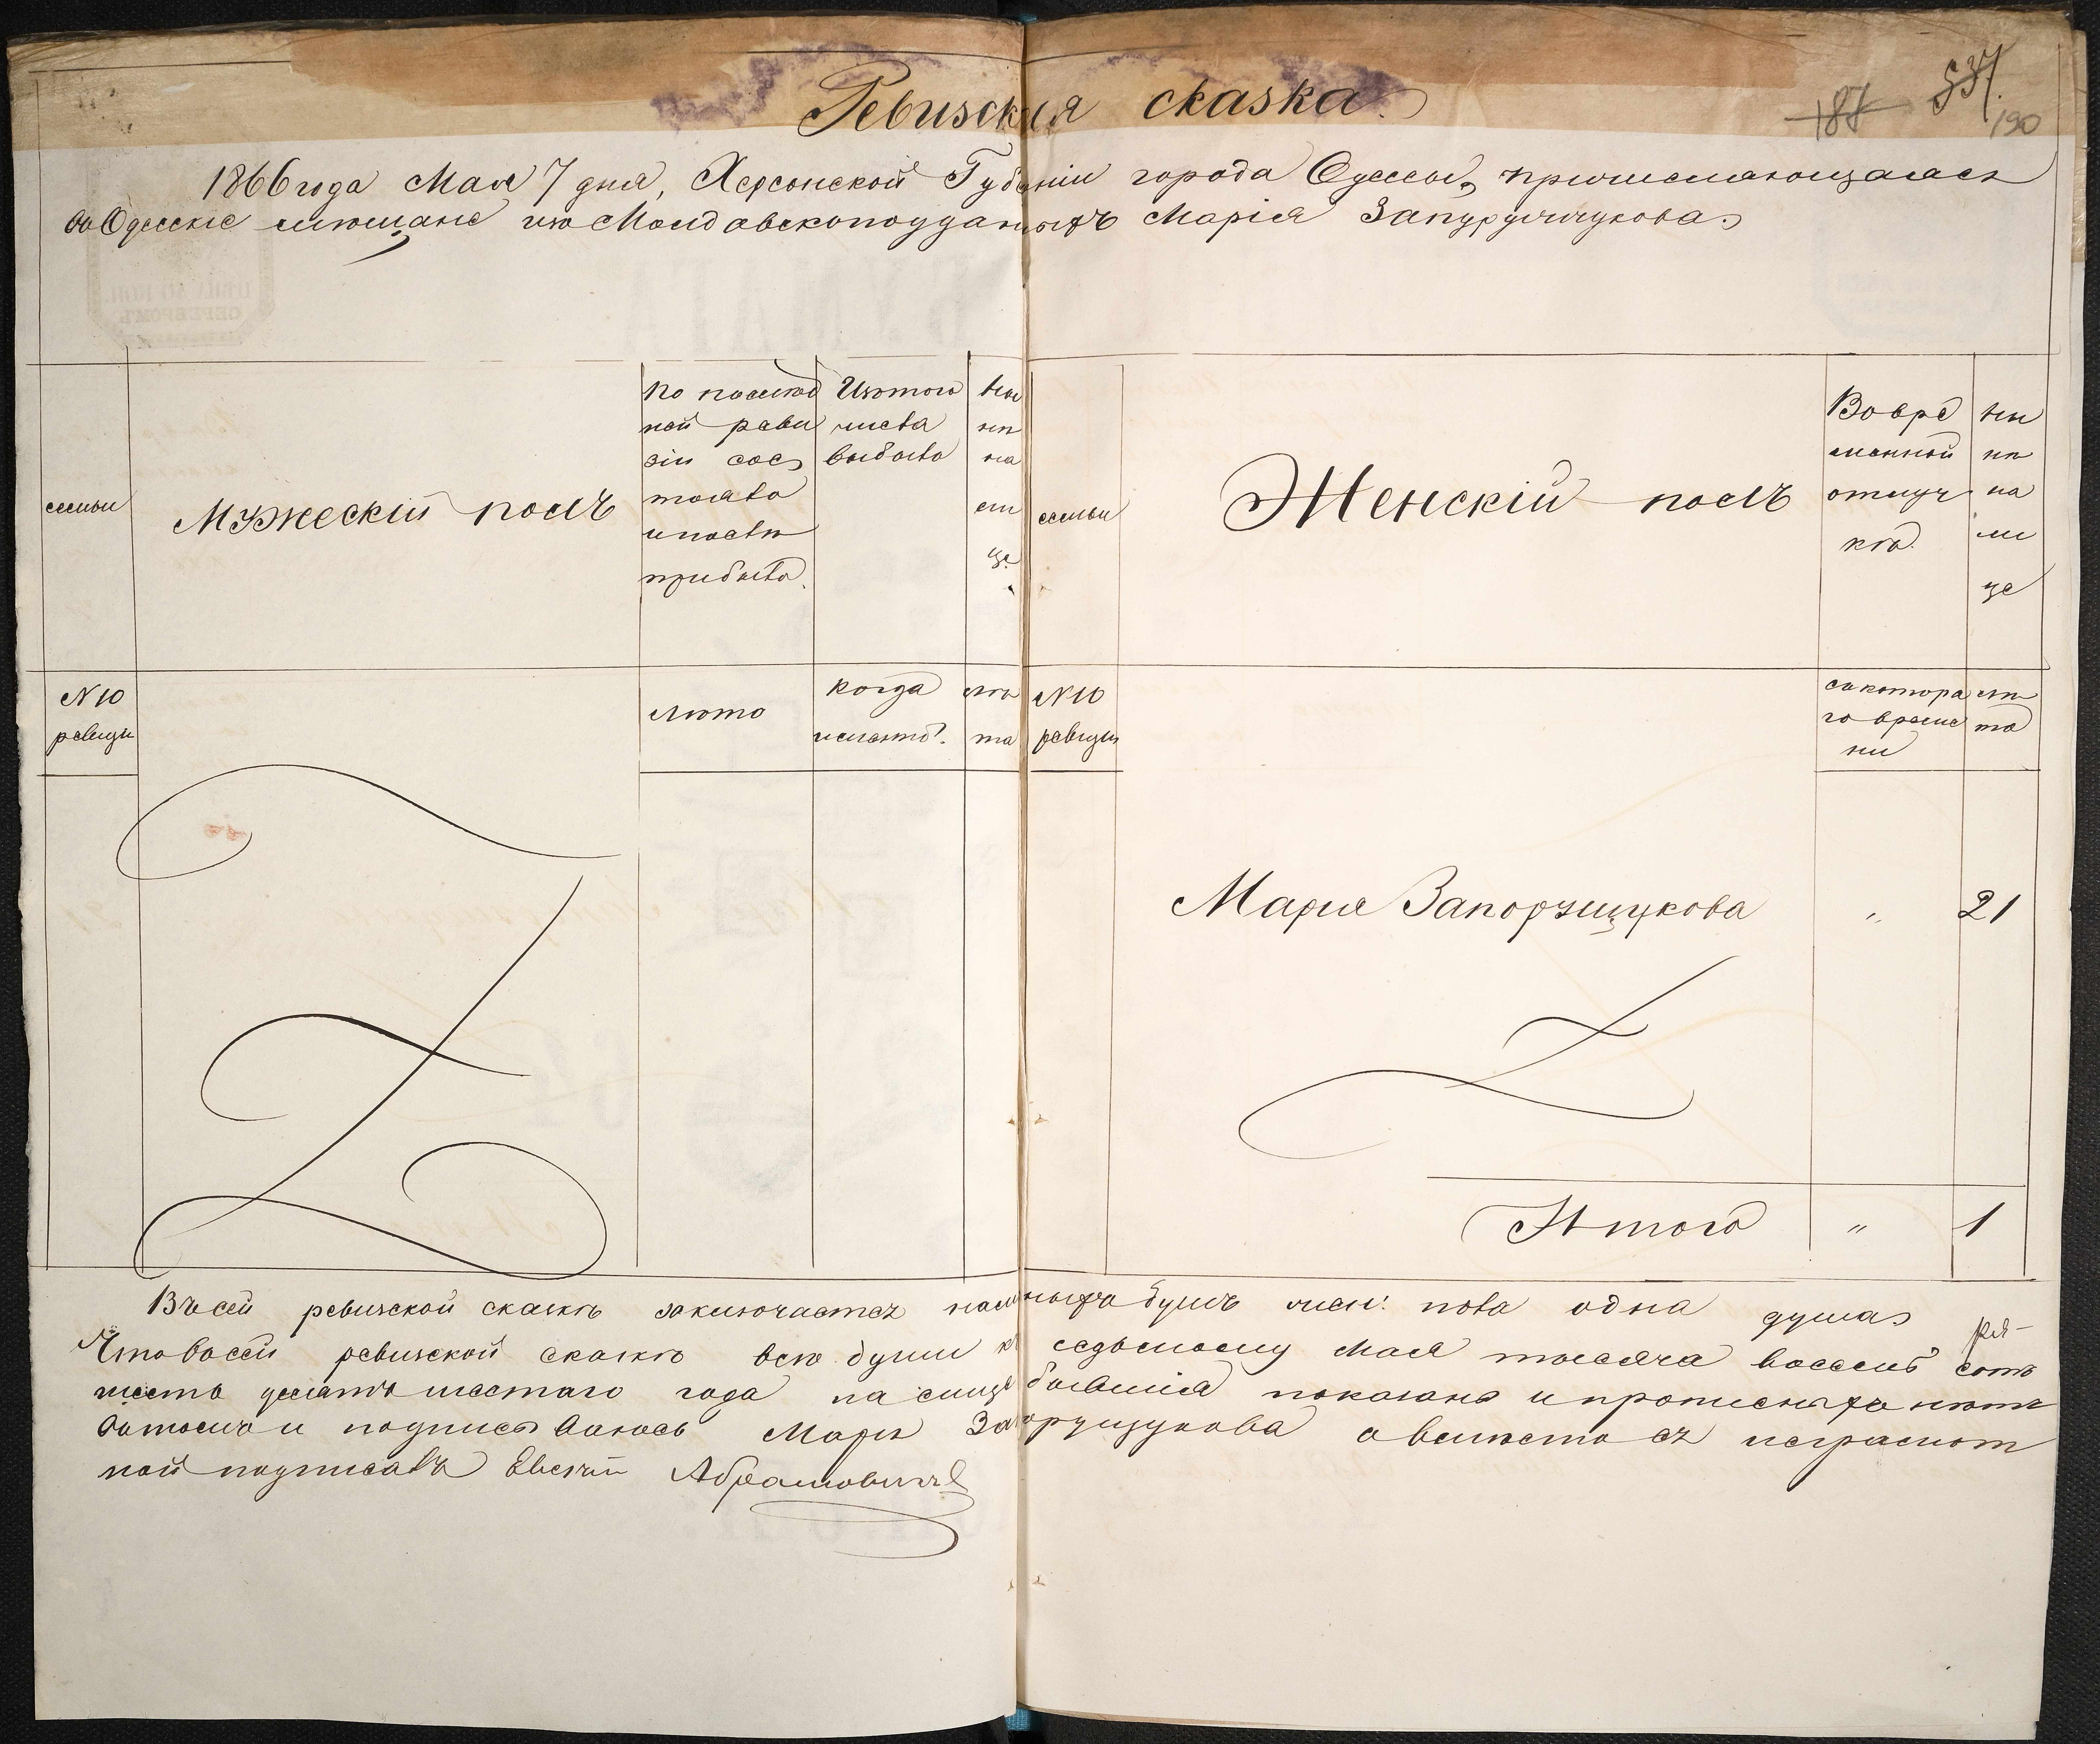 Ревизская сказка.
537.
187
190
1866 года Мая 7 дня, Херсонской Губерніи города Одессы, причисляющаяся
въ Одесскіе мѣщане изъ Молдавскоподданыхъ Марія
семьи
Мужескій полъ
По послѣд
ней реви
зіи сос
тояло
и послѣ
прибыло.
Изтого
числа
выбыло
ны
нѣ
на
ли
це
семьи
Женскій полъ
Вовре
менной
отлуч
кѣ.
ны
нѣ
на
ли
це
N 10
ревизіи
лѣто
когда
имянно.
лѣ
та
N 10
ревизіи
съкотора
го време
ни
лѣ
та
Марія Запорзищукова
"
21
Итого
"
1
Въ сей ревизской сказкѣ заключается налич ныхъ душъ жен: пола одна душа
Что въ сей ревизской сказкѣ всѣ души къ седьмому Мая тысяча восемь сотъ
шесть десятъ шестаго года на лице бывшія показаны и прописныхъ нѣтъ
въ томъ и подписываюсь Марія а вмѣсто ея неграмот
ной подписалъ Абрамовичъ